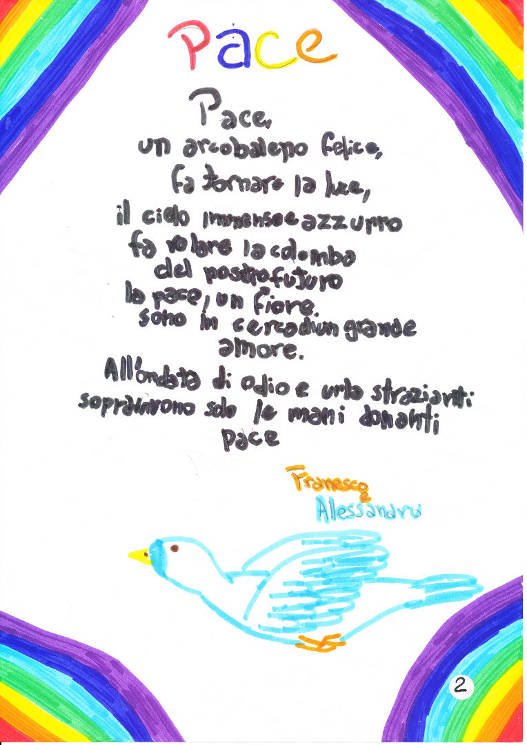 Pace
Pace,
un arcobaleno felice,
fa tornare la luce,
il cielo immenso e azzurro
fa volare la colomba
del nostro futuro
la pace, un fiore.
sono in cerca di un grande
amore.
All'ondata di odio e urla strazianti
sopravvivono solo le mani donanti
pace
Francesco
e
Alessandro
2